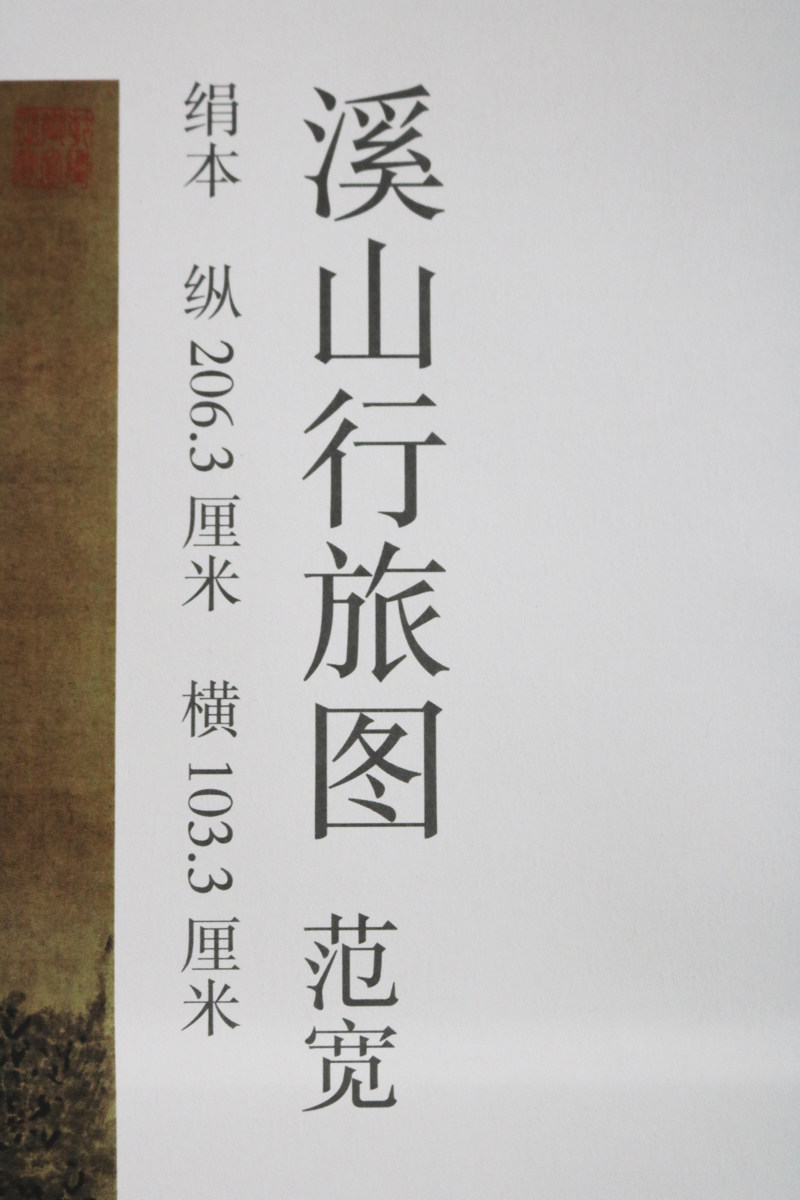 溪山行旅图 范宽
绢本 纵 206.3 厘米 横 103.3 厘米